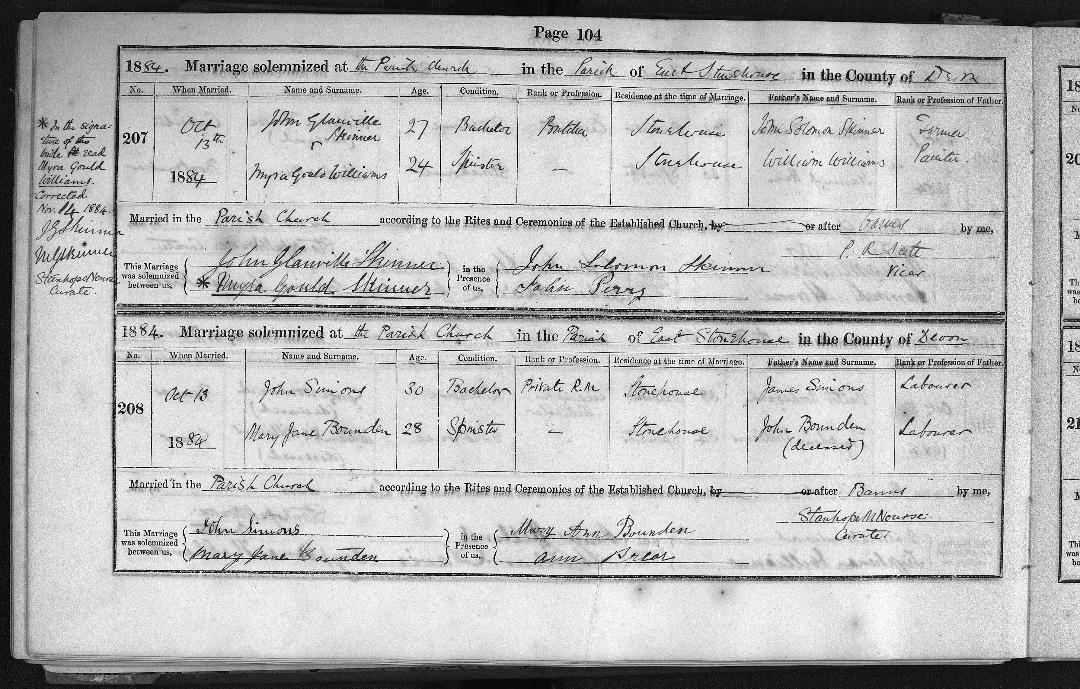 Page 104
1884. Marriage solemnized at the Parish Church in the Parish of East Stonehouse in the County of Devon
No. When Married. Name and Surname. Age. Condition. Rank or Profession. Residence at the time of Marriage. Father's Name and Surname. Rank or Profession of Father.
207 Oct 13th 1884 John Glanville Skinner 27 Bachelor Butcher Stonehouse John Solomon Skinner Farmer
Myra Gould Williams 24 Spinster — Stonehouse William Williams Painter
Married in the Parish Church according to the Rites and Ceremonies of the Established Church, by or after Banns by me,
P. R. Scott
Vicar
This Marriage was solemnized between us, John Glanville Skinner
* Myra Gould Skinner
in the Presence of us, John Solomon Skinner
John Perry
* In the signa-
ture of this
bride read
Myra Gould
Williams.
Corrected.
Nov. 14 1884.
J G Skinner
M G Skinner
Stanhope M Nourse
Curate.
1884. Marriage solemnized at the Parish Church in the Parish of East Stonehouse in the County of Devon
No. When Married. Name and Surname. Age. Condition. Rank or Profession. Residence at the time of Marriage. Father's Name and Surname. Rank or Profession of Father.
208 Oct 13 1884 John Simons 30 Bachelor Private R.M. Stonehouse James Simons Labourer
Mary Jane Bounden 28 Spinster — Stonehouse John Bounden (deceased) Labourer
Married in the Parish Church according to the Rites and Ceremonies of the Established Church, by or after Banns by me,
Stanhope M Nourse
Curate
This Marriage was solemnized between us, John Simons
Mary Jane Bounden
in the Presence of us, Mary Ann Bounden
Ann